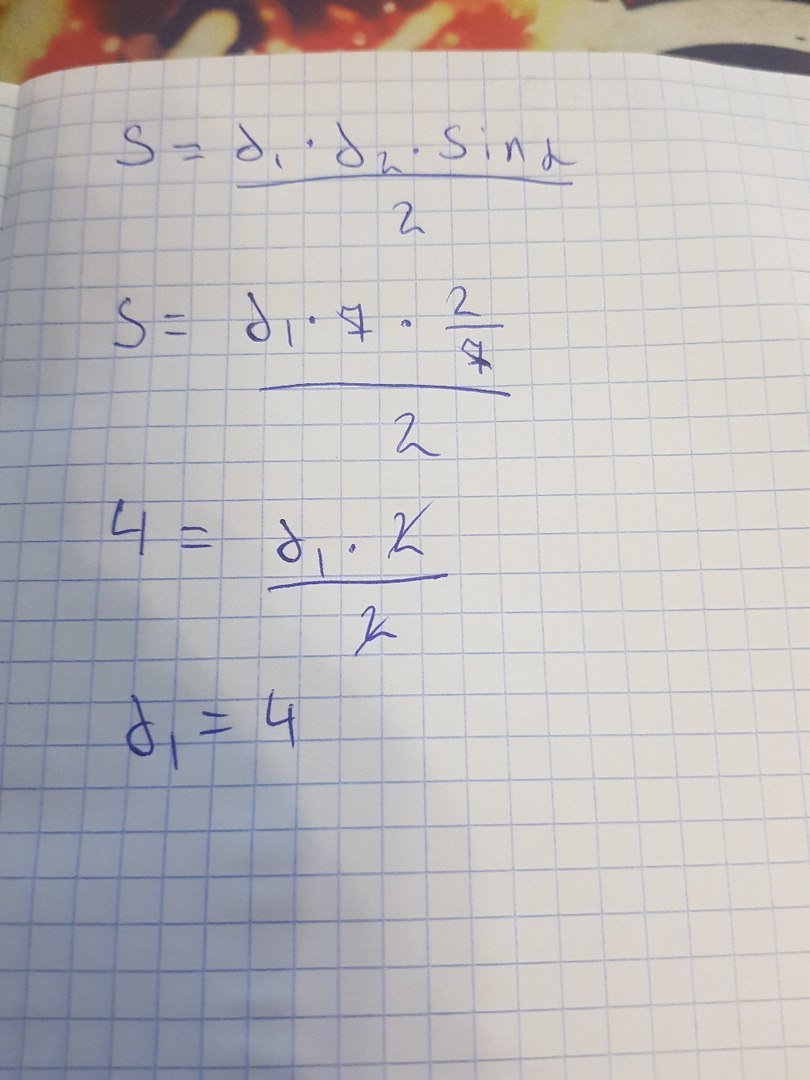 S = d₁ · d₂ · sin α / 2
S = d₁ · 7 · 2/7 / 2
4 = d₁ · 2 / 2
d₁ = 4